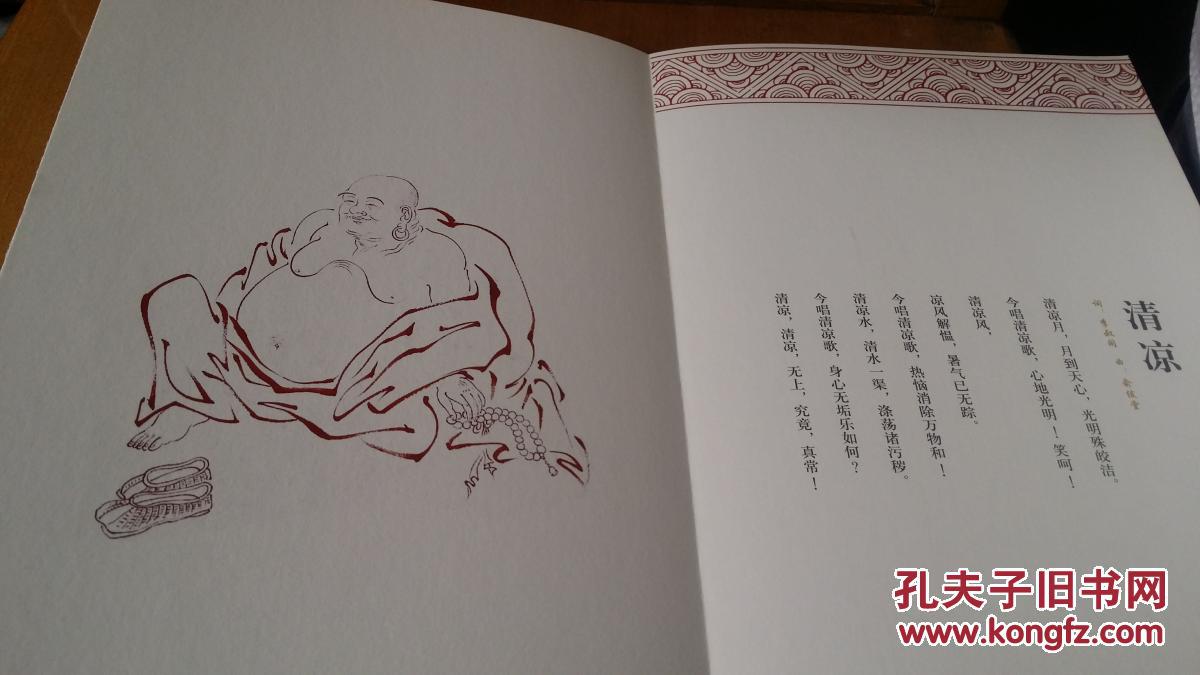 清凉
词：李叔同 曲：俞绂棠
清凉月，月到天心，光明殊皎洁。
今唱清凉歌，心地光明！笑呵！
清凉风，
凉风解愠，暑气已无踪。
今唱清凉歌，热恼消除万物和！
清凉水，清水一渠，涤荡诸污秽。
今唱清凉歌，身心无垢乐如何？
清凉，清凉，无上，究竟，真常！
孔夫子旧书网
www.kongfz.com